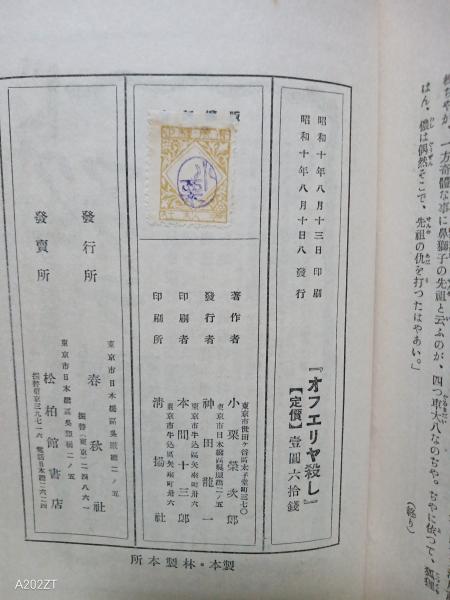 種ちやが、一方奇體な事に鼻獅子の先祖と云ふのが、四つ車大八なのぢや。ぢやに依つて、狐狸
はん、儂は偶然そこで、先祖の仇を打つたはやあい。」
（終り）
昭和十年八月十三日印刷
昭和十年八月十日八發行
『オフエリヤ殺し』
【定價】壹圓六拾錢
東京市世田ヶ谷區太子堂町三七〇
著作者 小栗榮次郎
東京市日本橋區吳服橋二ノ五
發行者 神田龍一
東京市牛込區矢來町卅六
印刷者 本間十三郎
東京市牛込區矢來町卅六
印刷所 清揚社
東京市日本橋區吳服橋二ノ五
發行所 春秋社
振替（東京）二四八六一
東京市日本橋區吳服橋二ノ五
發賣所 松柏館書店
製本・林製本所
A202ZT